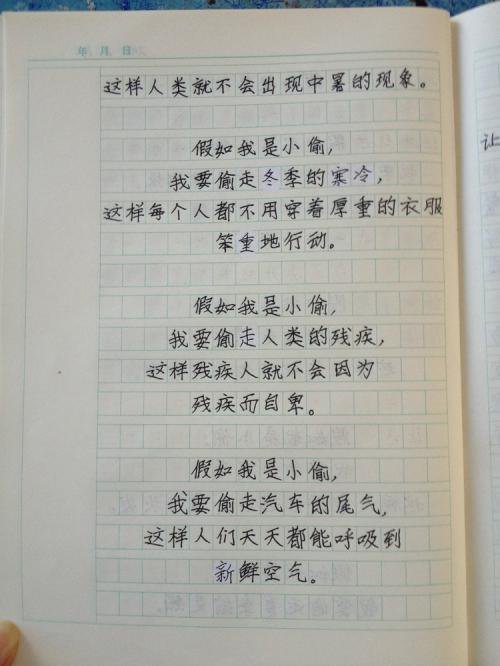 年 月 日
这样人类就不会出现中暑的现象。
假如我是小偷,
我要偷走冬季的寒冷,
这样每个人都不用穿着厚重的衣服
笨重地行动。
假如我是小偷,
我要偷走人类的残疾,
这样残疾人就不会因为
残疾而自卑。
假如我是小偷,
我要偷走汽车的尾气,
这样人们天天都能呼吸到
新鲜空气。
让